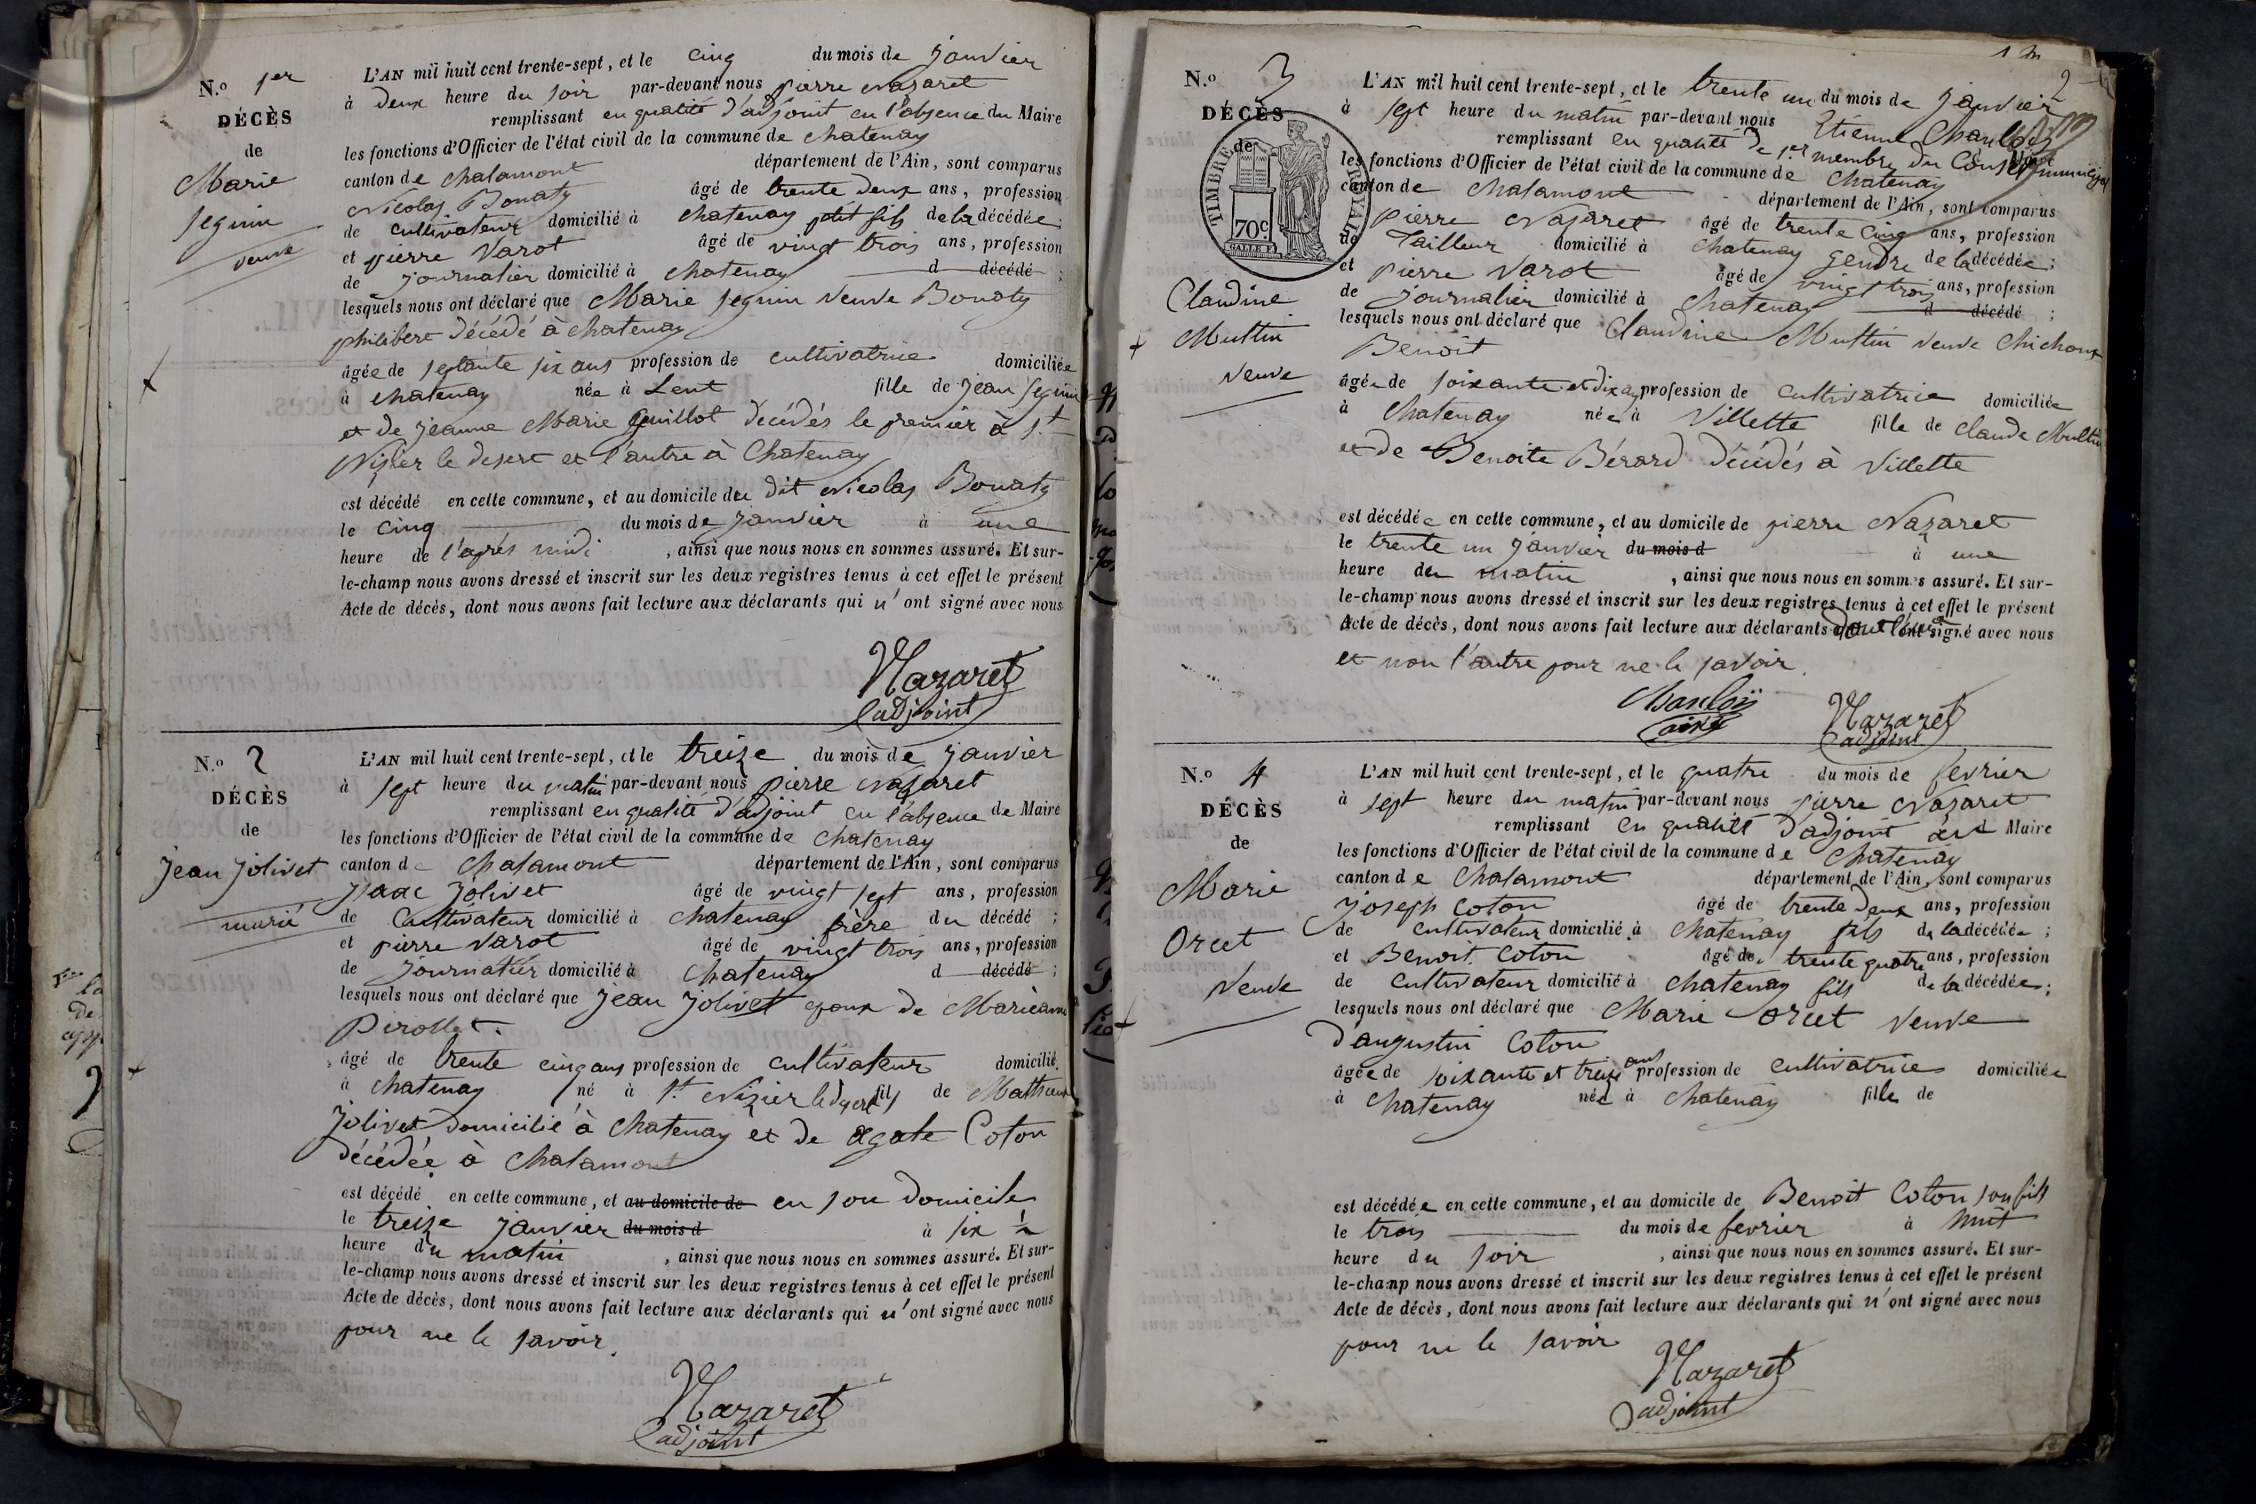 N.o 1er
DÉCÈS
de
Marie
Seguin
veuve
L'AN mil huit cent trente-sept, et le cinq du mois de janvier
à deux heure du soir par-devant nous pierre Nazaret
remplissant en qualité d'adjoint en l'absence du Maire
les fonctions d'Officier de l'état civil de la commune de chatenay
canton de chalamont département de l'Ain, sont comparus
Nicolas Bonaty âgé de trente deux ans, profession
de cultivateur domicilié à chatenay petit fils de la décédée;
et pierre Varot âgé de vingt trois ans, profession
de journalier domicilié à chatenay d décédé;
lesquels nous ont déclaré que Marie seguin veuve Bonaty
philibert décédé à chatenay
âgée de septante six ans profession de cultivatrice domiciliée
à chatenay née à Lent fille de jean seguin
et de jeanne Marie Guillot décédés le premier à St
Nizier le desert et l'autre à Chatenay
est décédé en cette commune, et au domicile du dit Nicolas Bonaty
le cinq du mois de janvier à une
heure de l'après midi, ainsi que nous nous en sommes assuré. Et sur-
le-champ nous avons dressé et inscrit sur les deux registres tenus à cet effet le présent
Acte de décès, dont nous avons fait lecture aux déclarants qui n'ont signé avec nous
Nazaret
adjoint
N.o 2
DÉCÈS
de
jean jolivet
marié
L'AN mil huit cent trente-sept, et le treize du mois de janvier
à sept heure du matin par-devant nous pierre Nazaret
remplissant en qualité d'adjoint en l'absence de Maire
les fonctions d'Officier de l'état civil de la commune de chatenay
canton de chalamont département de l'Ain, sont comparus
isaac jolivet âgé de vingt sept ans, profession
de Cultivateur domicilié à chatenay frère du décédé;
et pierre Varot âgé de vingt trois ans, profession
de journalier domicilié à chatenay d décédé;
lesquels nous ont déclaré que jean jolivet epoux de Marieanne
Pirollet.
âgé de trente cinq ans profession de cultivateur domicilié
à chatenay né à St Nizier le desert fils de Mathieu
jolivet domicilié à chatenay et de agate Coton
décédée à chalamont
est décédé en cette commune, et au domicile de en son domicile
le treize janvier du mois d à six ½
heure du matin, ainsi que nous nous en sommes assuré. Et sur-
le-champ nous avons dressé et inscrit sur les deux registres tenus à cet effet le présent
Acte de décès, dont nous avons fait lecture aux déclarants qui n'ont signé avec nous
pour ne le savoir.
Nazaret
adjoint
2
N.o 3
DÉCÈS
de
TIMBRE ROYAL
70c
GALLE F.
Claudine
Muttin
Veuve
L'AN mil huit cent trente-sept, et le trente un du mois de janvier
à sept heure du matin par-devant nous Etienne Chanloy
remplissant en qualité de 1er membre du Conseil municipal
les fonctions d'Officier de l'état civil de la commune de chatenay
canton de chalamont département de l'Ain, sont comparus
pierre Nazaret âgé de trente cinq ans, profession
de Tailleur domicilié à chatenay gendre de la décédée;
et pierre Varot âgé de vingt trois ans, profession
de journalier domicilié à chatenay d décédé;
lesquels nous ont déclaré que Claudine Muttin veuve Chichoux
Benoit
âgée de soixante et dix ans profession de cultivatrice domiciliée
à Chatenay née à Villette fille de claude Muttin
et de Benoite Bérard décédés à Villette
est décédée en cette commune, et au domicile de pierre Nazaret
le trente un janvier du mois d à une
heure du matin, ainsi que nous nous en sommes assuré. Et sur-
le-champ nous avons dressé et inscrit sur les deux registres tenus à cet effet le présent
Acte de décès, dont nous avons fait lecture aux déclarants dont l'un a signé avec nous
et non l'autre pour ne le savoir.
Chanloy
ainé
Nazaret
adjoint
N.o 4
DÉCÈS
de
Marie
Orcet
Veuve
L'AN mil huit cent trente-sept, et le quatre du mois de fevrier
à sept heure du matin par-devant nous pierre Nazaret
remplissant en qualité d'adjoint Maire
les fonctions d'Officier de l'état civil de la commune de Chatenay
canton de Chalamont département de l'Ain, sont comparus
joseph Coton âgé de trente deux ans, profession
de cultivateur domicilié à chatenay fils de la décédée;
et Benoit Coton âgé de trente quatre ans, profession
de cultivateur domicilié à chatenay fils de la décédée;
lesquels nous ont déclaré que Marie Orcet veuve
d'augustin Coton
âgée de soixante et treize ans profession de cultivatrice domiciliée
à Chatenay née à chatenay fille de
est décédée en cette commune, et au domicile de Benoit Coton son fils
le trois du mois de fevrier à huit
heure du soir, ainsi que nous nous en sommes assuré. Et sur-
le-champ nous avons dressé et inscrit sur les deux registres tenus à cet effet le présent
Acte de décès, dont nous avons fait lecture aux déclarants qui n'ont signé avec nous
pour ne le savoir
Nazaret
adjoint